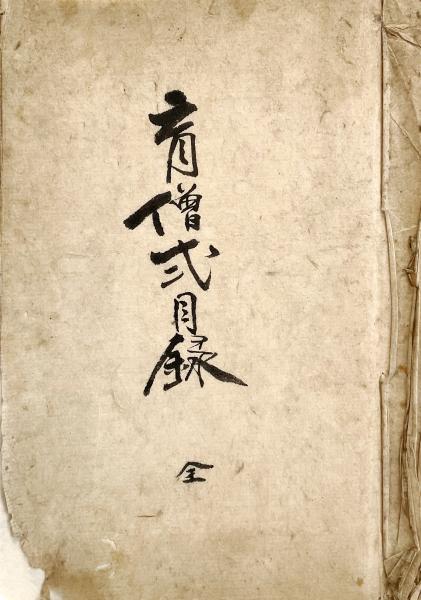 盲僧式目録
全